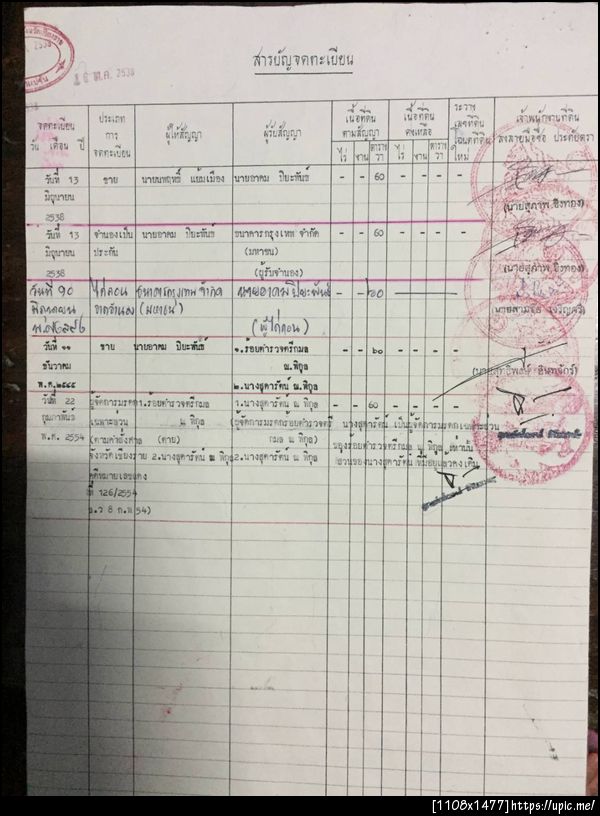 ๒๕๓๘
๒๕๓๘
สารบัญจดทะเบียน
จดทะเบียน
วัน เดือน ปี
ประเภท
การ
จดทะเบียน
ผู้ให้สัญญา
ผู้รับสัญญา
เนื้อที่ดิน
ตามสัญญา
ไร่ งาน ตาราง
วา
เนื้อที่ดิน
คงเหลือ
ไร่ งาน ตาราง
วา
ระวาง
เลขที่ดิน
โฉนดที่ดิน
ใหม่
เจ้าพนักงานที่ดิน
ลงลายมือชื่อ ประทับตรา
วันที่ 13 ขาย นายนพฤทธิ์ แย้มเมือง นายอาคม ปิยะพันธ์ - - 60 - - - -
มิถุนายน
2538
(นายสุภาพ อิงทอง)
วันที่ 13 จำนองเป็น นายอาคม ปิยะพันธ์ ธนาคารกรุงเทพ จำกัด - - 60 - - - -
มิถุนายน ประกัน (มหาชน)
2538 (ผู้รับจำนอง)
(นายสุภาพ อิงทอง)
วันที่ ไถ่ถอน ธนาคารกรุงเทพ จำกัด นายอาคม ปิยะพันธ์ - - ๖๐
จากจำนอง (มหาชน)
(ผู้ไถ่ถอน)
วันที่ ๑๑ ขาย นายอาคม ปิยะพันธ์ ๑.ร้อยตำรวจตรีกมล - - ๖๐ - - - -
ธันวาคม ณ.พิกุล
พ.ศ.๒๕๔๔ ๒.นางสุดารัตน์ ณ.พิกุล
วันที่ 22 ผู้จัดการมรดก 1.ร้อยตำรวจตรีกมล 1.นางสุดารัตน์ ณ พิกุล - - 60 - - - -
กุมภาพันธ์ เฉพาะส่วน ณ พิกุล (ผู้จัดการมรดกร้อยตำรวจตรี นางสุดารัตน์ เป็นผู้จัดการมรดกเฉพาะส่วน
พ.ศ. 2554 (ตามคำสั่งศาล (ตาย) กมล ณ พิกุล) ของร้อยตำรวจตรีกมล ณ พิกุล เท่านั้น
จังหวัดเชียงราย 2.นางสุดารัตน์ ณ พิกุล 2.นางสุดารัตน์ ณ พิกุล ส่วนของนางสุดารัตน์ ที่มีอยู่แล้วคงเดิม
คดีหมายเลขแดง
ที่ 126/2554
ล.ว 8 ก.พ 54)
[1108x1477]https://upic.me/